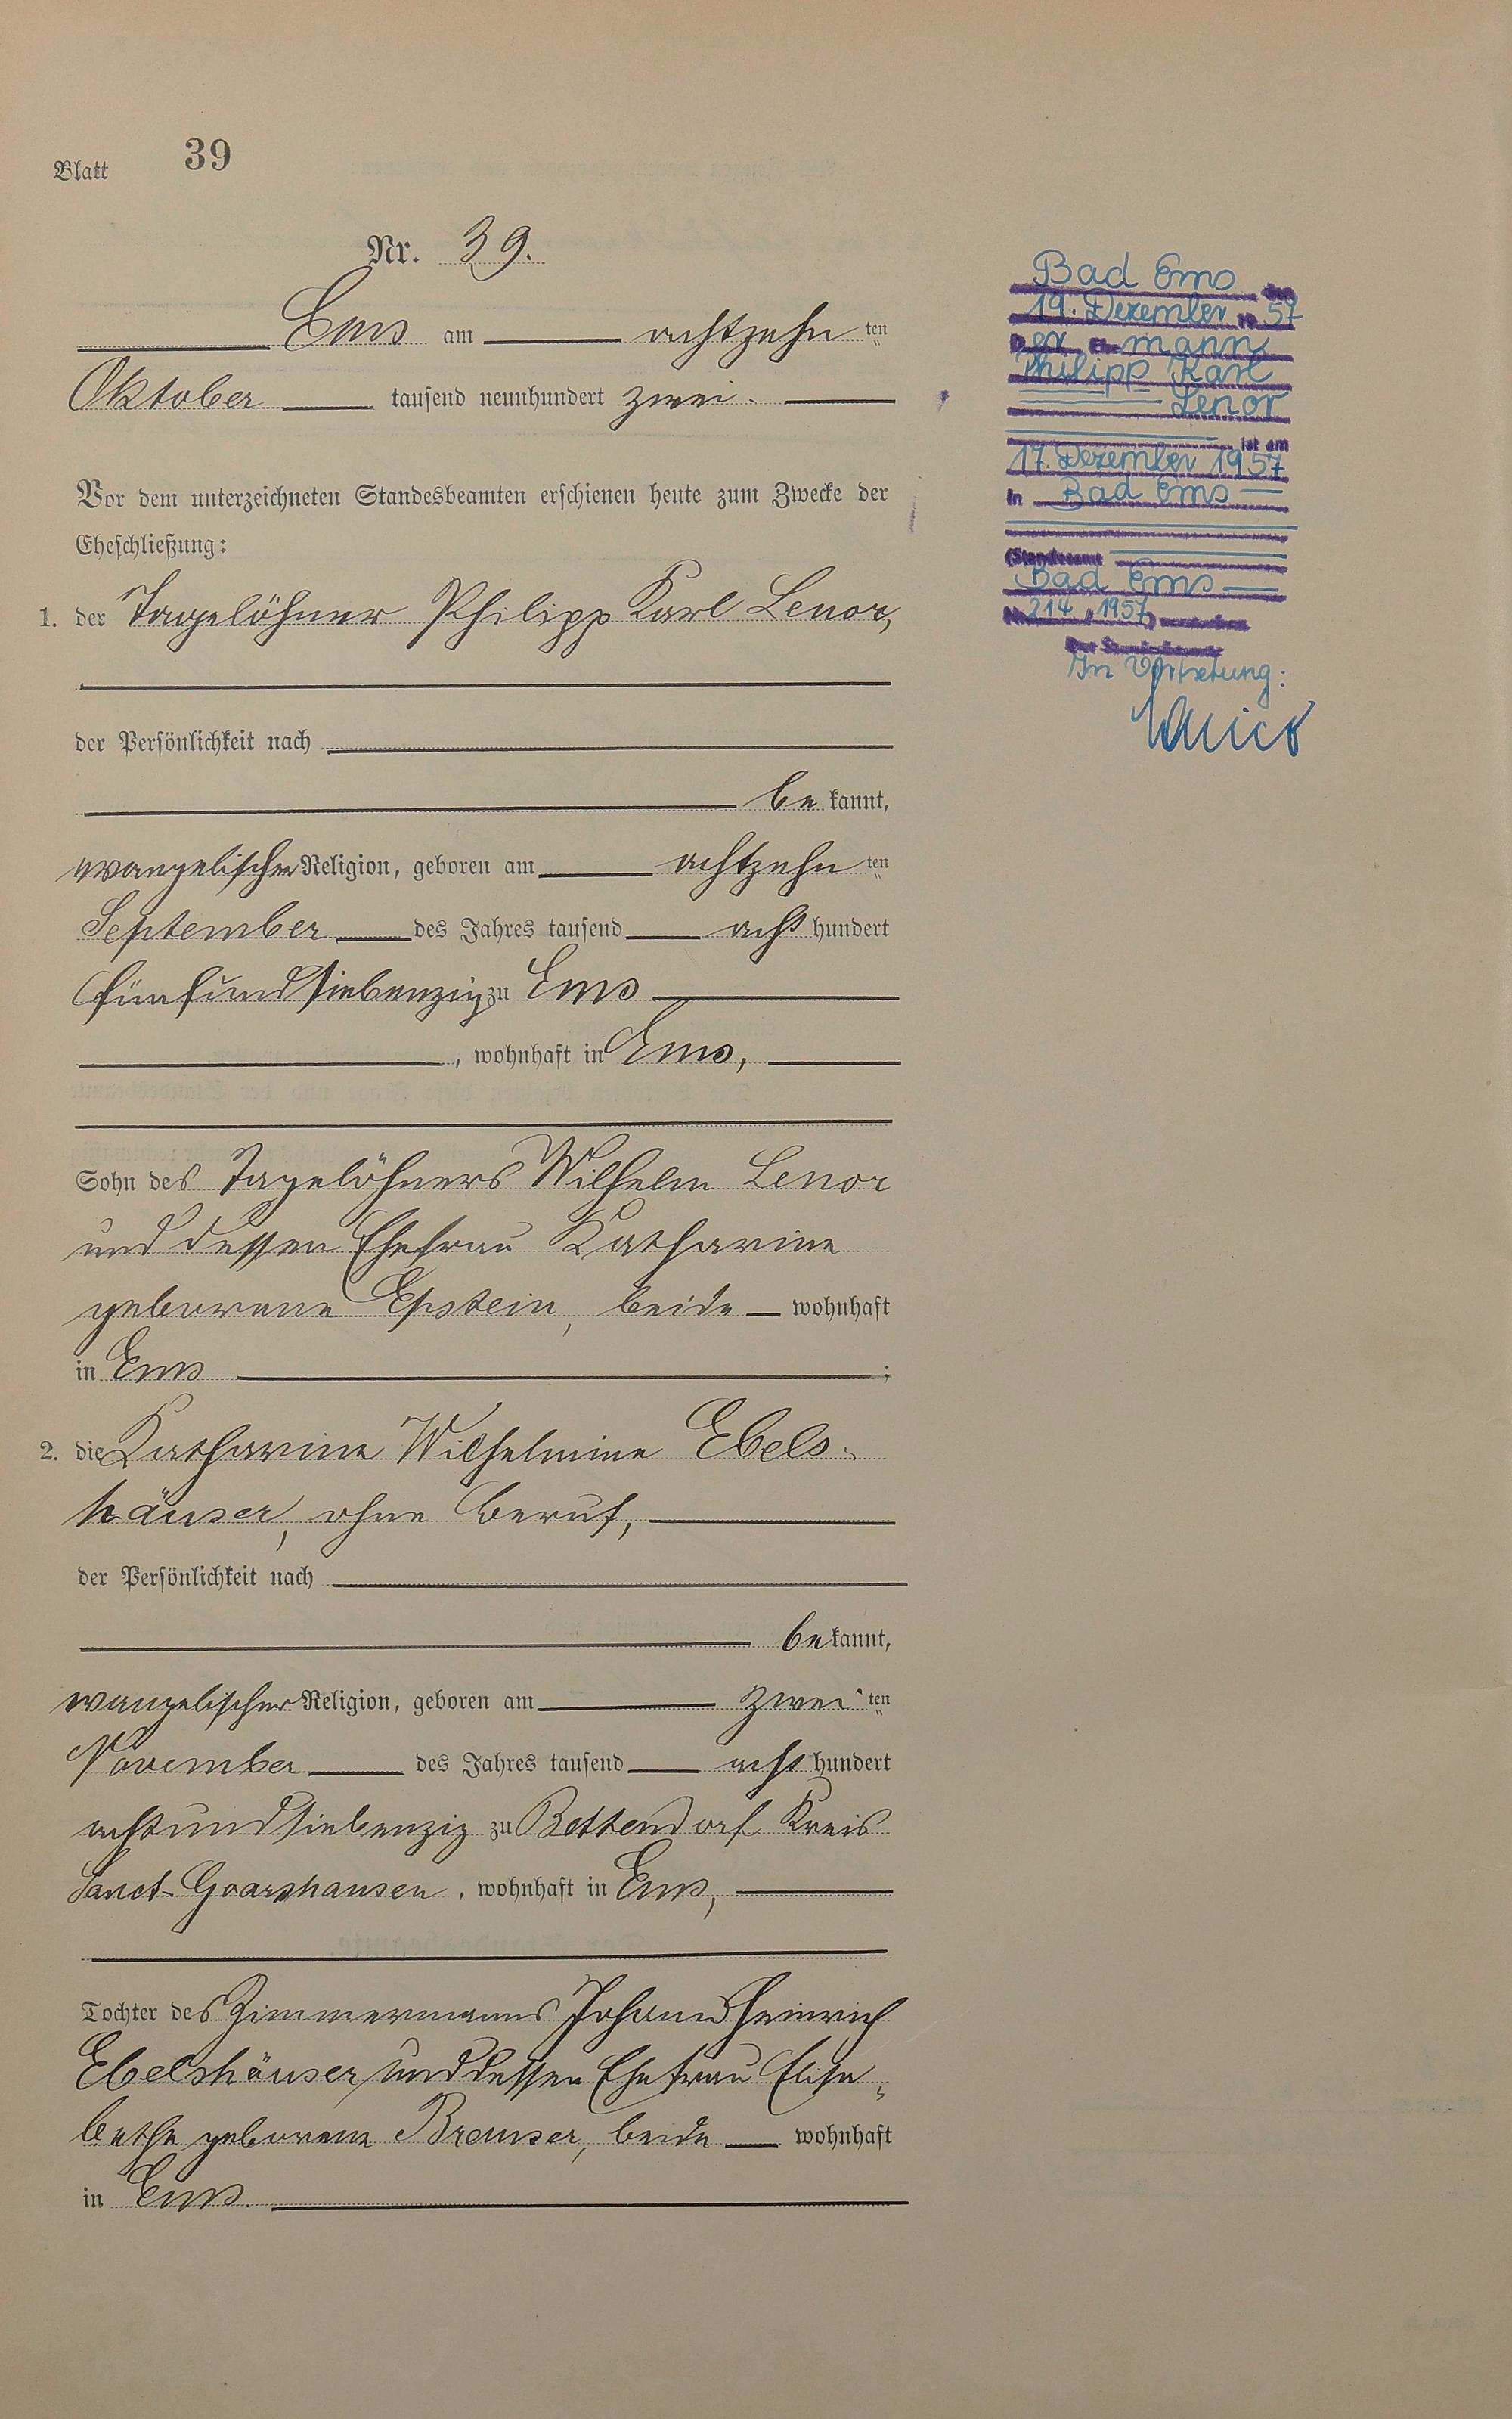 Blatt 39
Nr. 39.
Ems am achtzehn ten
Oktober tausend neunhundert zwei.
Vor dem unterzeichneten Standesbeamten erschienen heute zum Zwecke der
Eheschließung:
1. der Tagelöhner Philipp Karl Lenor,
der Persönlichkeit nach
be kannt,
evangelischer Religion, geboren am achtzehn ten
September des Jahres tausend acht hundert
fünfundsiebenzig zu Ems
, wohnhaft in Ems,
Sohn des Tagelöhners Wilhelm Lenor
und dessen Ehefrau Katharine
geborene Epstein, beide wohnhaft
in Ems ;
2. die Katharine Wilhelmine Ebels-
häuser, ohne Beruf,
der Persönlichkeit nach
be kannt,
evangelischer Religion, geboren am zwei ten
November des Jahres tausend acht hundert
achtundsiebenzig zu Bettendorf Kreis
Sanct-Goarshausen, wohnhaft in Ems,
Tochter des Zimmermanns Johann Heinrich
Ebelshäuser und dessen Ehefrau Elisa-
bethe geborene Bremser, beide wohnhaft
in Ems.
Bad Ems den
19. Dezember 19 57
Der Ehe mann
Philipp Karl
Lenor
ist am
17. Dezember 1957
in Bad Ems
(Standesamt
Bad Ems
Nr. 214 / 1957) verstorben
Der Standesbeamte
In Vertretung: